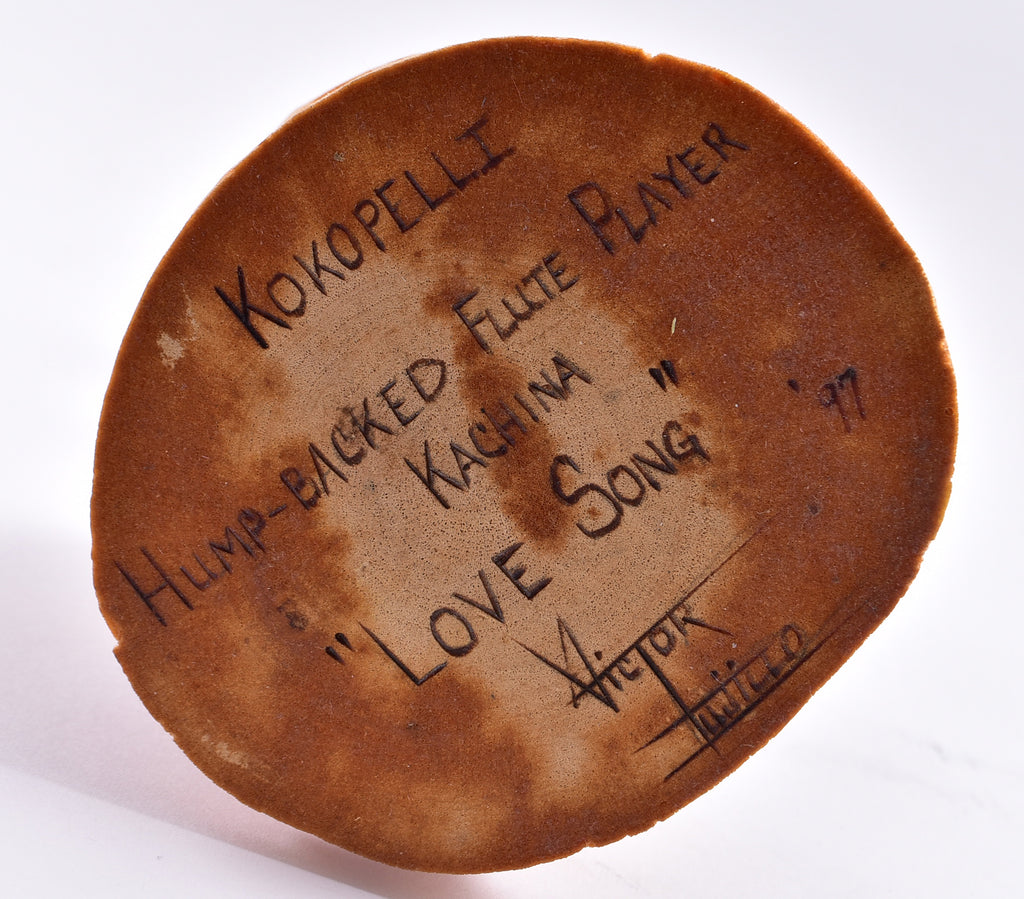 KOKOPELLI
HUMP-BACKED FLUTE PLAYER
KACHINA
"LOVE SONG"
'97
VICTOR